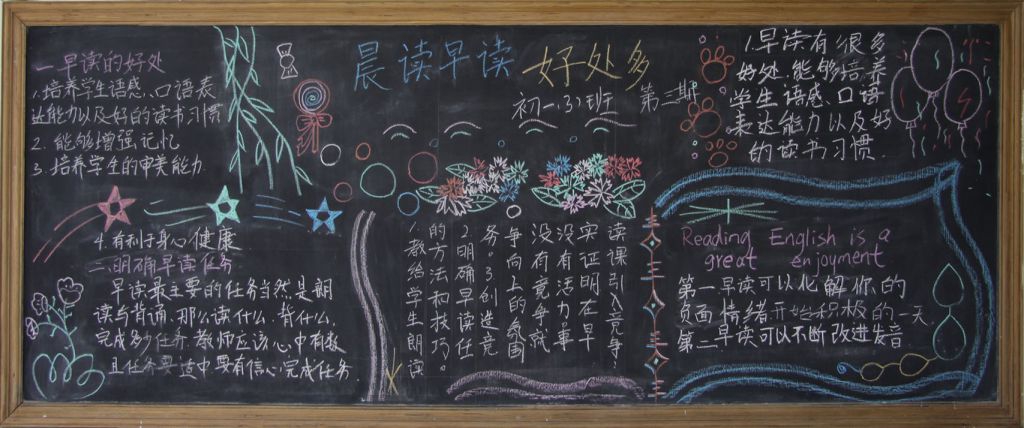 晨读早读 好处多
初一.3)班 第三期
一.早读的好处
1.培养学生语感、口语表
达能力以及好的读书习惯
2. 能够增强记忆
3.培养学生的审美能力.
4.有利于身心健康
二.明确早读任务
早读最主要的任务当然是朗
读与背诵,那么读什么,背什么,
完成多少任务.教师应该心中有数
且任务要适中要有信心完成任务
1.教给学生朗读
的方法和技巧。
2.明确早读任
务。3.创造竞
争向上的氛围
没有竞争就
没有活力事
实证明在早
读课引入竞争
1.早读有很多
好处.能够培养
学生语感、口语
表达能力以及好
的读书习惯.
Reading English is a
great enjoyment
第一早读可以化解你的
页面情绪.开始积极的一天.
第二早读可以不断改进发音